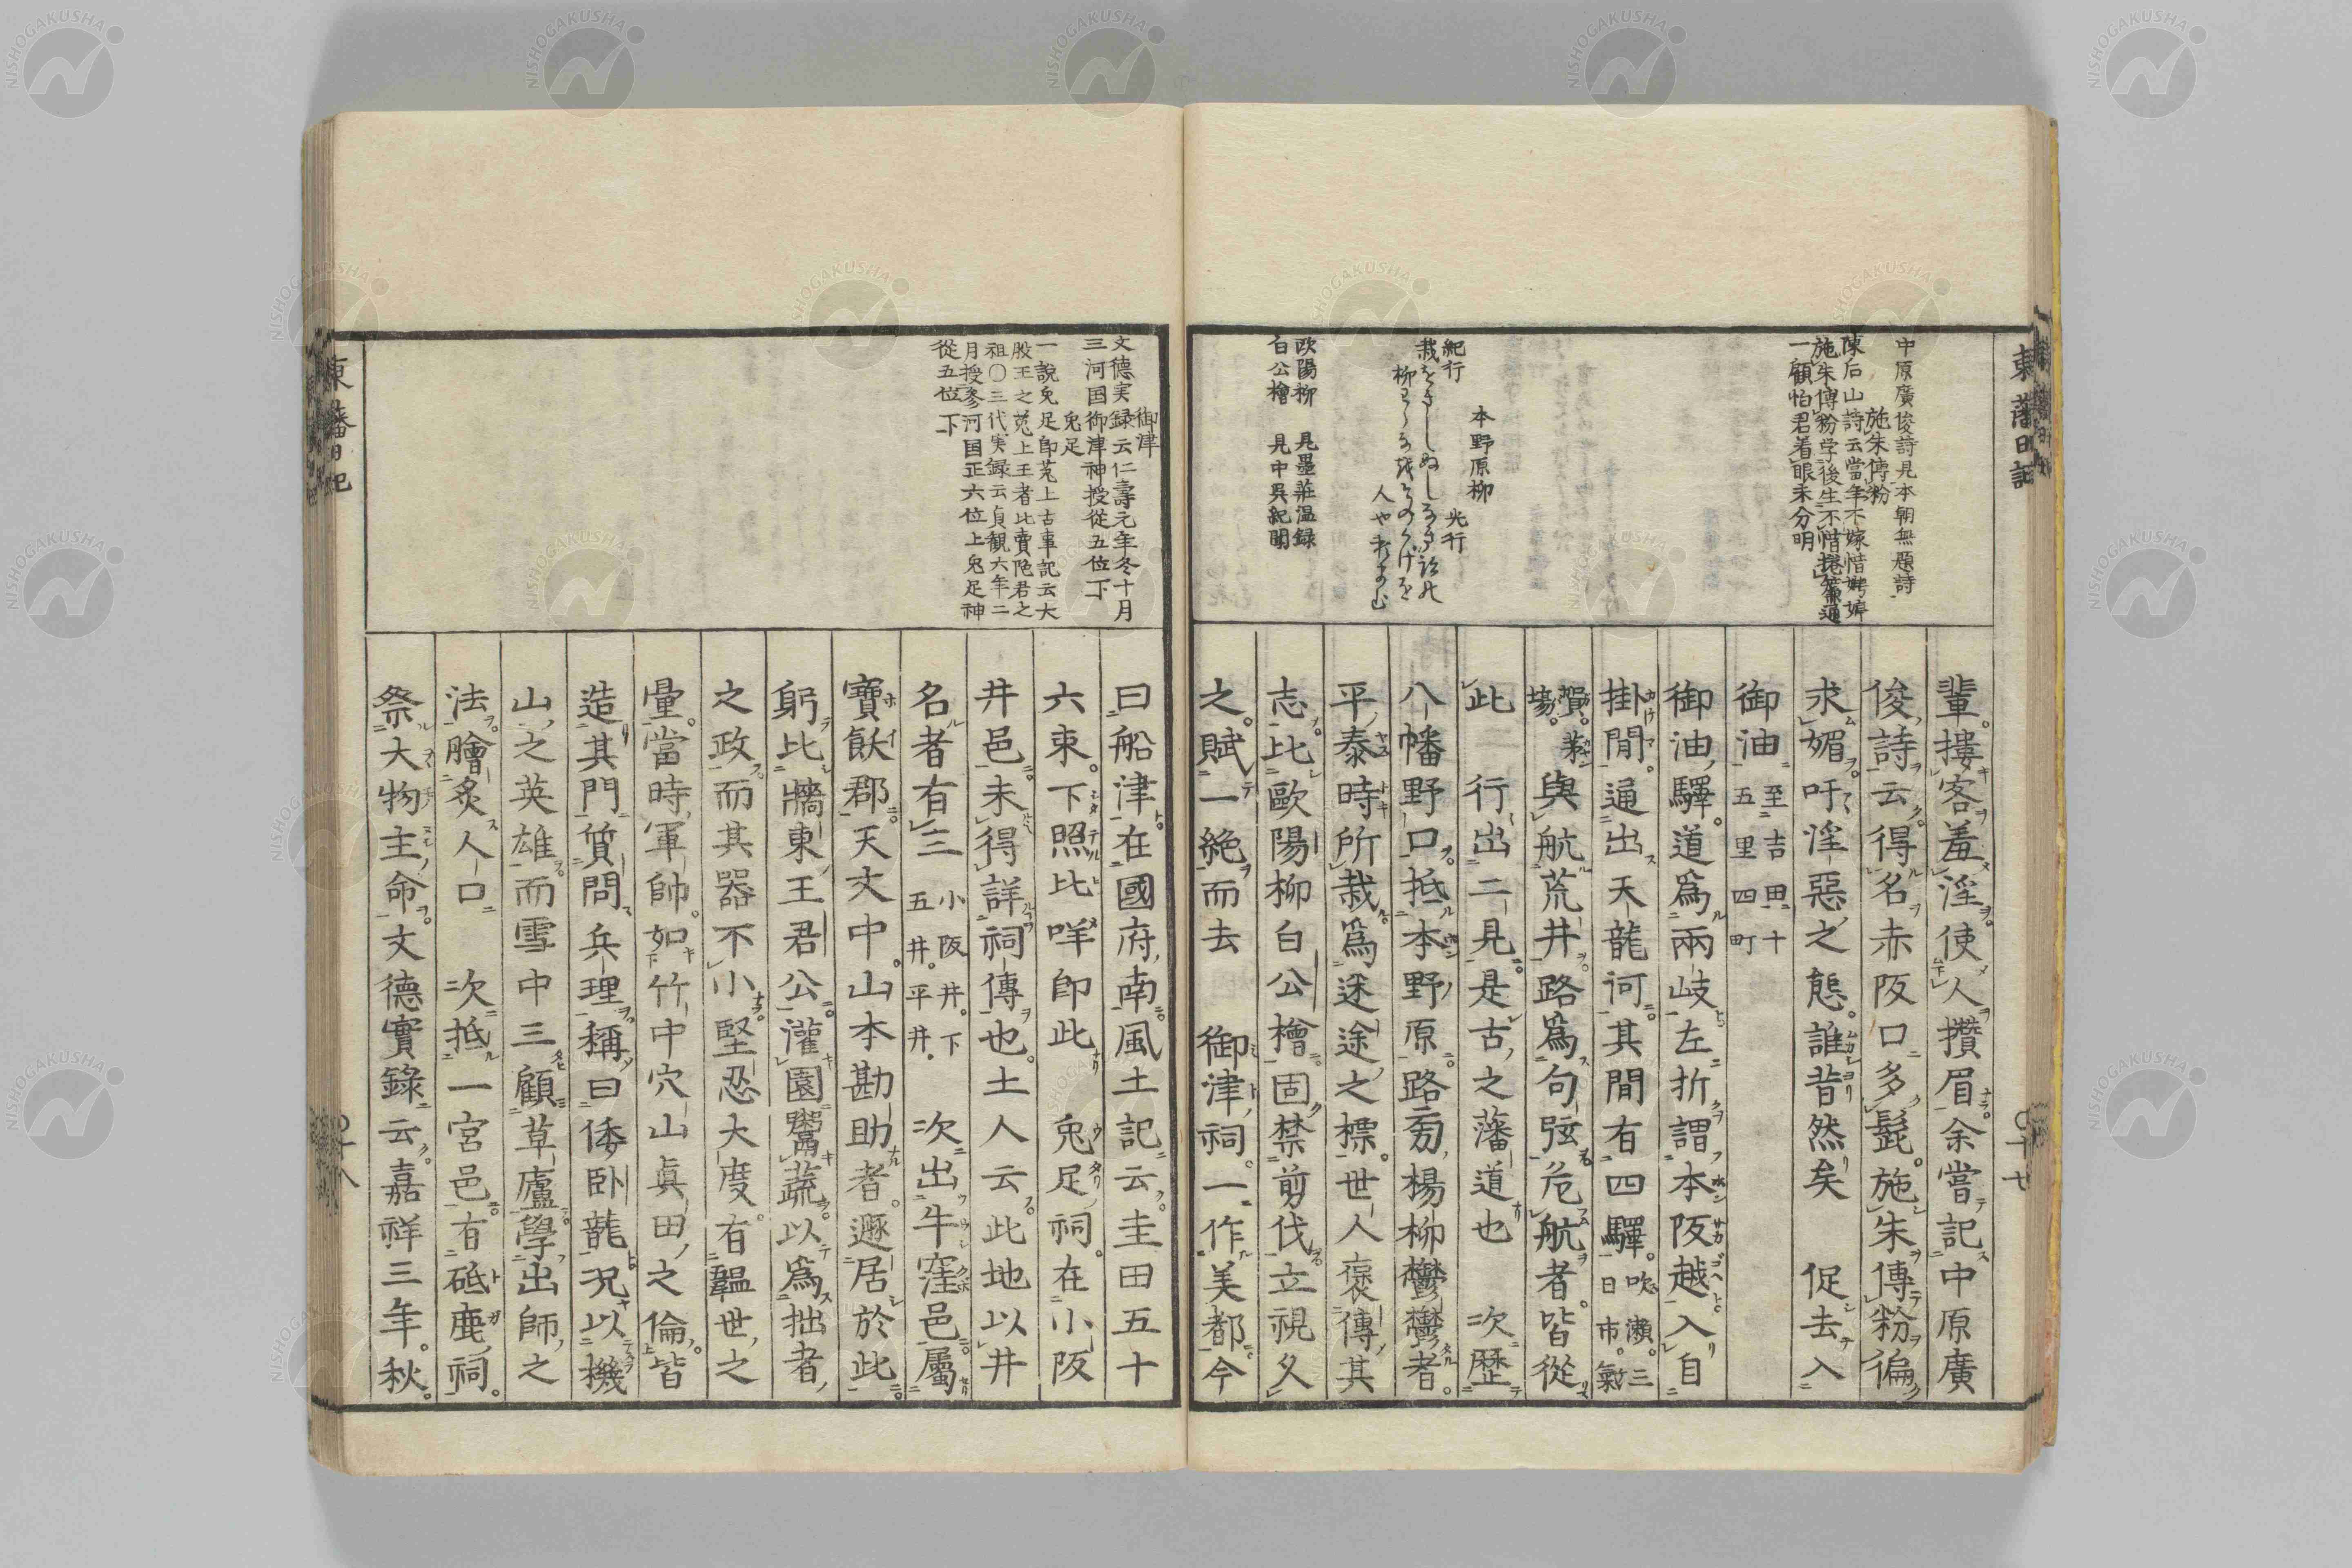 東藩日記
中原廣俊詩見本朝無題詩
施朱傅粉
陳后山詩云當年不嫁惜娉婷
施朱傅粉学後生不惜捲簾通
一顧怕君着眼未分明
本野原柳
紀行 光行
人や者のむ
歐陽柳 見墨莊温録
白公檜 見中吳紀聞
輩摟客羞淫使人攢眉余嘗記中原廣
俊詩云得名赤阪口多髭施朱傅粉徧
求媚吁淫惡之態誰昔然矣 促去入
御油至吉田十五里四町
御油驛道爲兩岐左折謂本阪越入自
掛閒通出天龍河其閒有四驛吹瀬三日市氣
賀𡋽與航荒井路爲句弦危航者皆從
此 行出二見是古之藩道也 次歷
八幡野口抵本野原路旁楊柳鬱鬱者
平泰時所栽爲迷途之標世人褒傳其
志比歐陽柳白公檜固禁剪伐立視久
之賦一絶而去 御津祠一作美都今
〇十七
御津
文德実録云仁壽元年冬十月
三河国御津神授從五位下
兔足
一說兔足即菟上古事記云大
股王之菟上王者比賣陀君之
祖〇三代実録云貞観六年二
月授參河国正六位上兔足神
從五位下
曰船津在國府南風土記云圭田五十
六束下照比咩卽此 兔足祠在小阪
井邑未得詳祠傳也土人云此地以井
名者有三小阪井下五井平井 次出牛窪邑屬
寶飫郡天文中山本勘助者遯居於此
躬比牆東王君公灌園鬻蔬以爲拙者
之政而其器不小堅忍大度有韞世之
量當時軍帥如竹中穴山眞田之倫皆
造其門質問兵理稱曰倭臥龍況以機
山之英雄而雪中三顧草廬學出師之
法膾炙人口 次抵一宮邑有砥鹿祠
祭大物主命文德實錄云嘉祥三年秋
東藩日記
〇十八